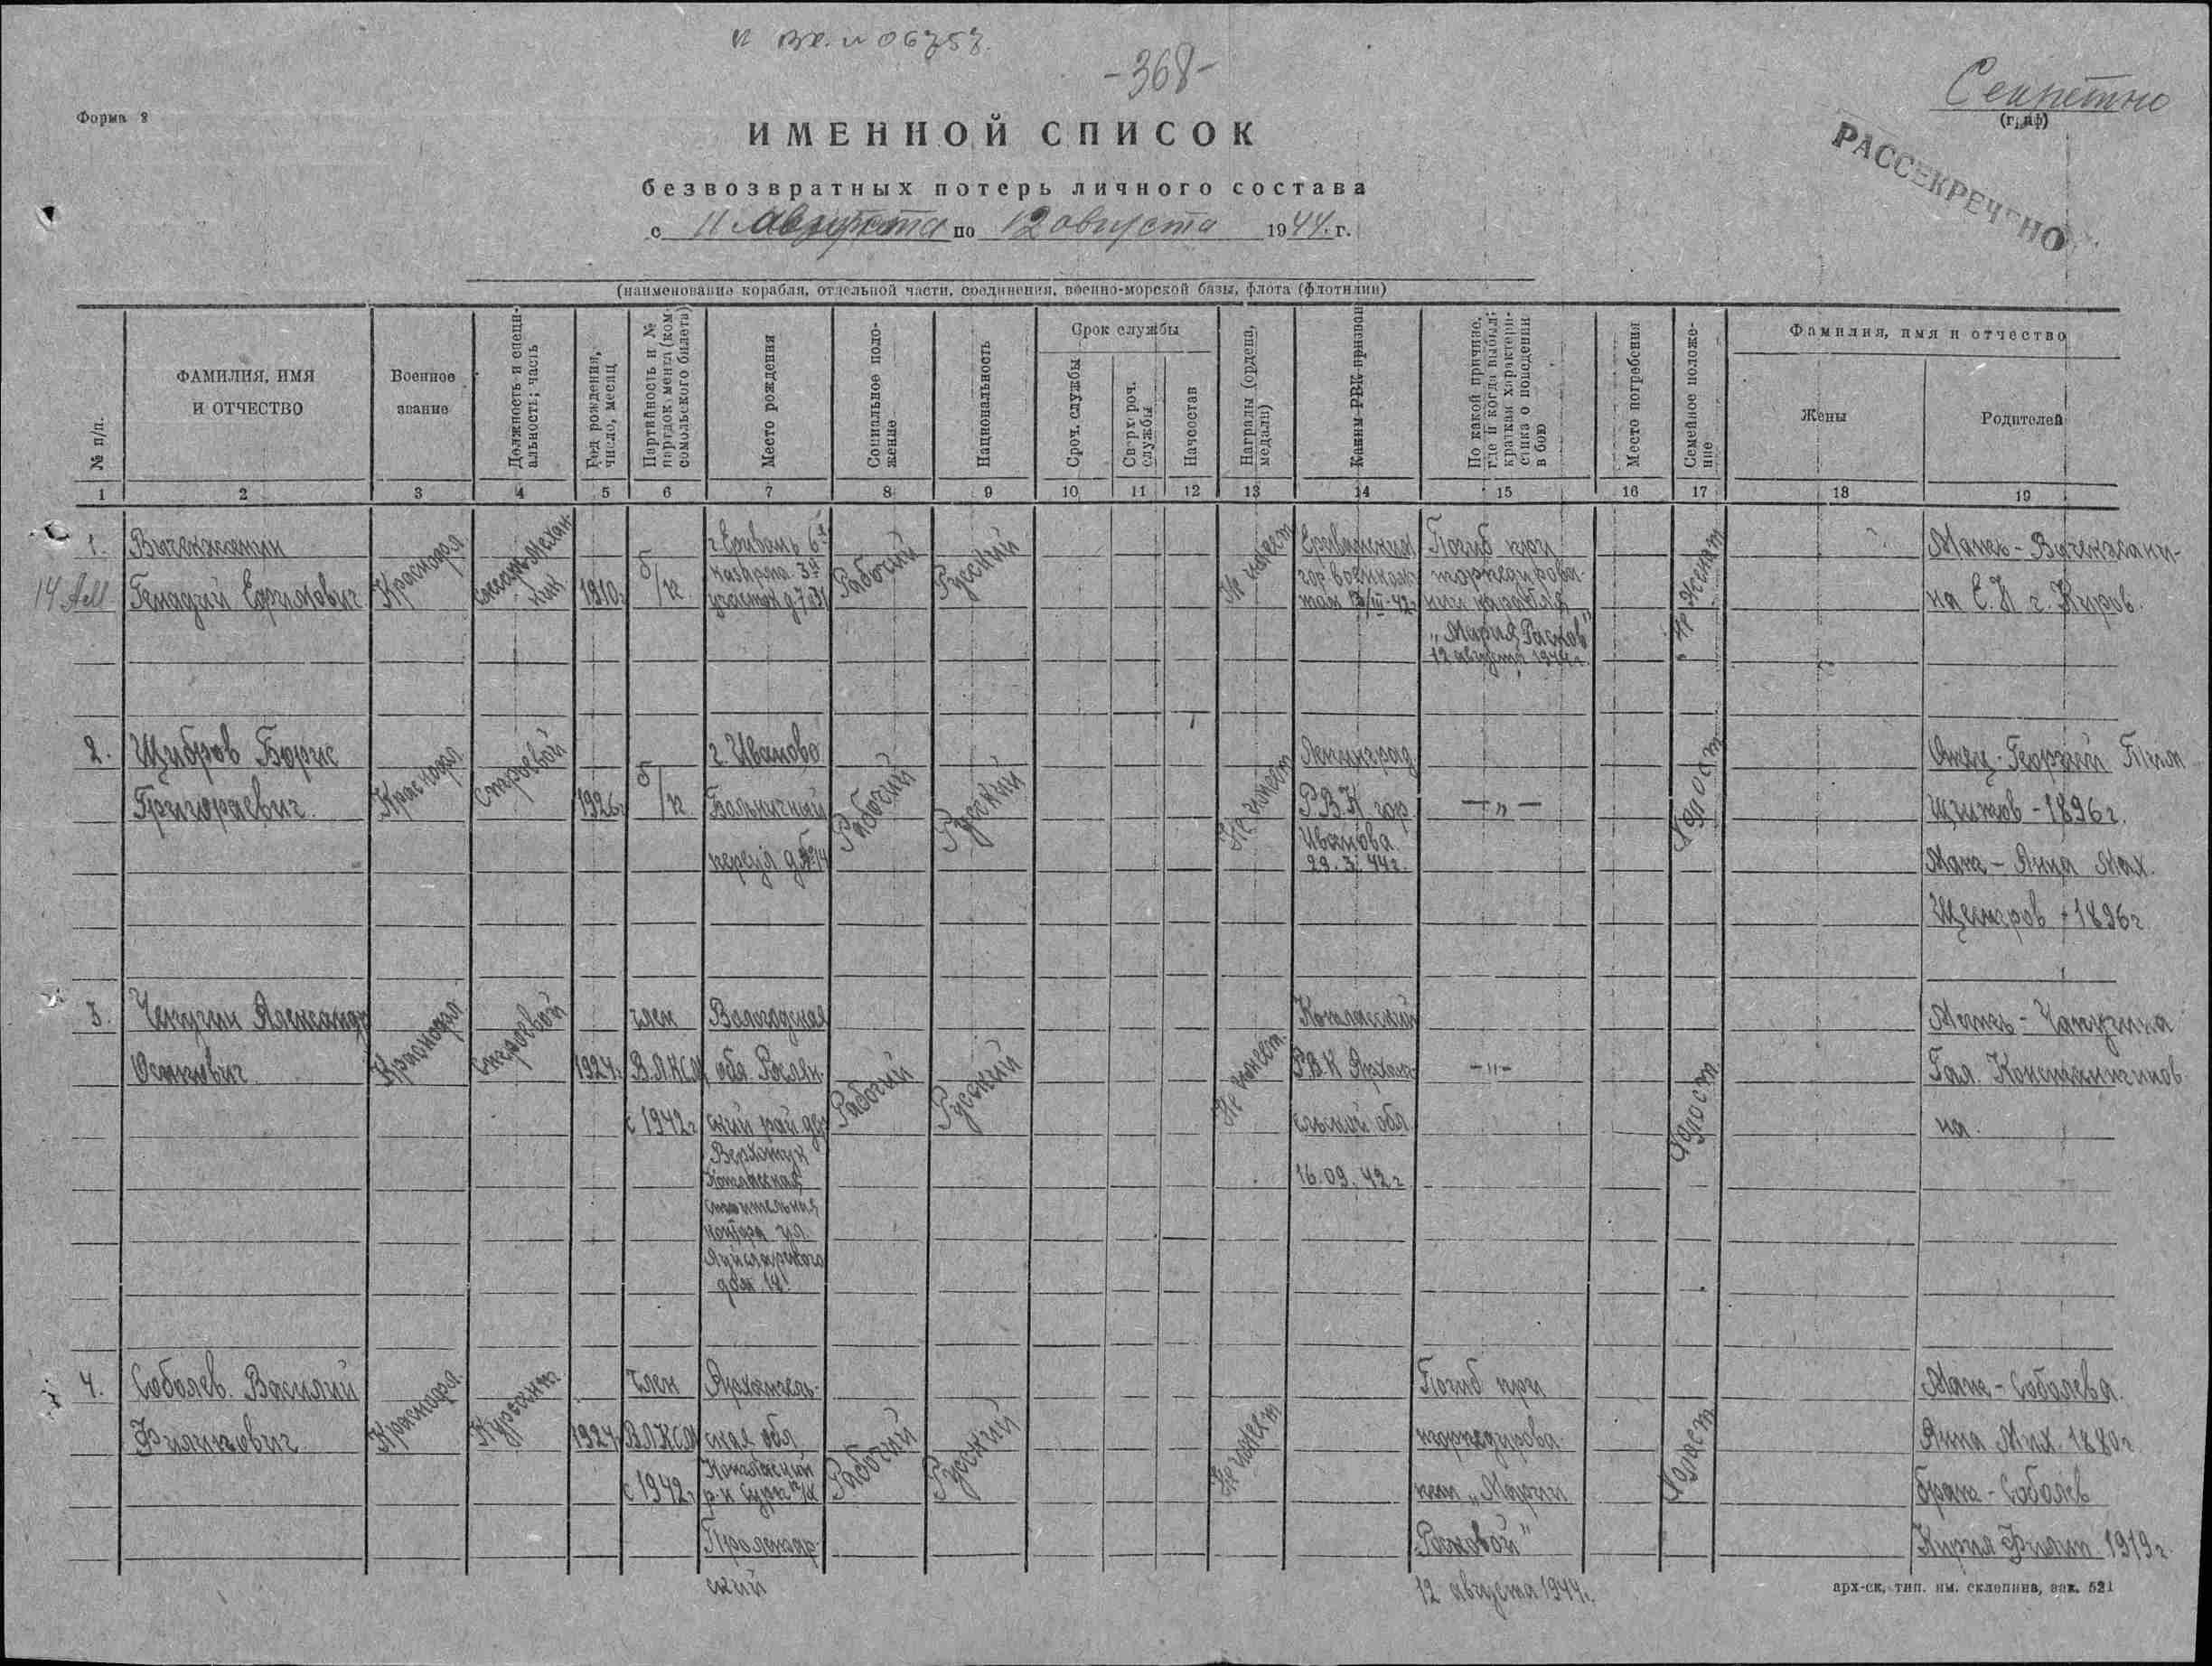 вх. № 06757
-368-
Секретно
(гриф)
РАССЕКРЕЧЕНО
Форма 8
ИМЕННОЙ СПИСОК
безвозвратных потерь личного состава
с 11 Августа по 12 августа 1944 г.
(наименование корабля, отдельной части, соединения, военно-морской базы, флота (флотилии)
№ п/п.
ФАМИЛИЯ, ИМЯ
И ОТЧЕСТВО
Военное
звание
Должность и специ-
альность; часть
Год рождения,
число, месяц
Партийность и №
партдокумента (ком-
сомольского билета)
Место рождения
Социальное поло-
жение
Национальность
Срок службы
Сроч. службы
Сверхсроч.
службы
Начсостав
Награды (ордена,
медали)
Каким РВК призван
По какой причине,
где и когда выбыл;
краткая характери-
стика о поведении
в бою
Место погребения
Семейное положе-
ние
Фамилия, имя и отчество
Жены
Родителей
1 2 3 4 5 6 7 8 9 10 11 12 13 14 15 16 17 18 19
1.
Генадий Ефимович
Краснофл.
слесарь механ-
ник
1910г
б/п
участок д.7
Рабочий
Русский
Не имеет
гор. военком-
Погиб при
торпедирова-
нии корабля
"Мария Расков"
12 августа 1944г.
Не женат
Мать -
на Е.И г. Киров.
2. Щибров Борис
Григорьевич
Краснофл
строевой
1926г
б/п
г. Иваново
Больничный
переул д №14
Рабочий
Русский
Не имеет
Ленинград.
РВК гор.
Иванова.
29.3.44г.
-"-
Холост
Отец - Георгий
- 1896г.
Мать - Анна Мах.
- 1896г
3. Чепугин Александр
Осипович
Краснофл
строевой
1924г
член
ВЛКСМ
с 1942г
Вологодская
обл. Рослян-
ский рай дер
Котласская
строительная
контора ул.
дом 14
Рабочий
Русский
Не имеет
Котласский
РВК Архан-
ельской обл
16.09.42г
-"-
Холост
Мать - Чапугина
Гал. Константинов-
на
4. Соболев Василий
Филипович
Краснофл
Курсант
1924
член
ВЛКСМ
с 1942г
Архангель-
ская обл
Котласский
р-н
Пролетар-
ский
Рабочий
Русский
Не имеет
Погиб при
торпедирова-
нии "Марии
Расковой"
12 августа 1944г.
Холост
Мать - Соболева
Анна Мих. 1880г
брат - Соболев
Кирил Филип 1919г.
арх-ск, тип. им. склепина, зак. 521